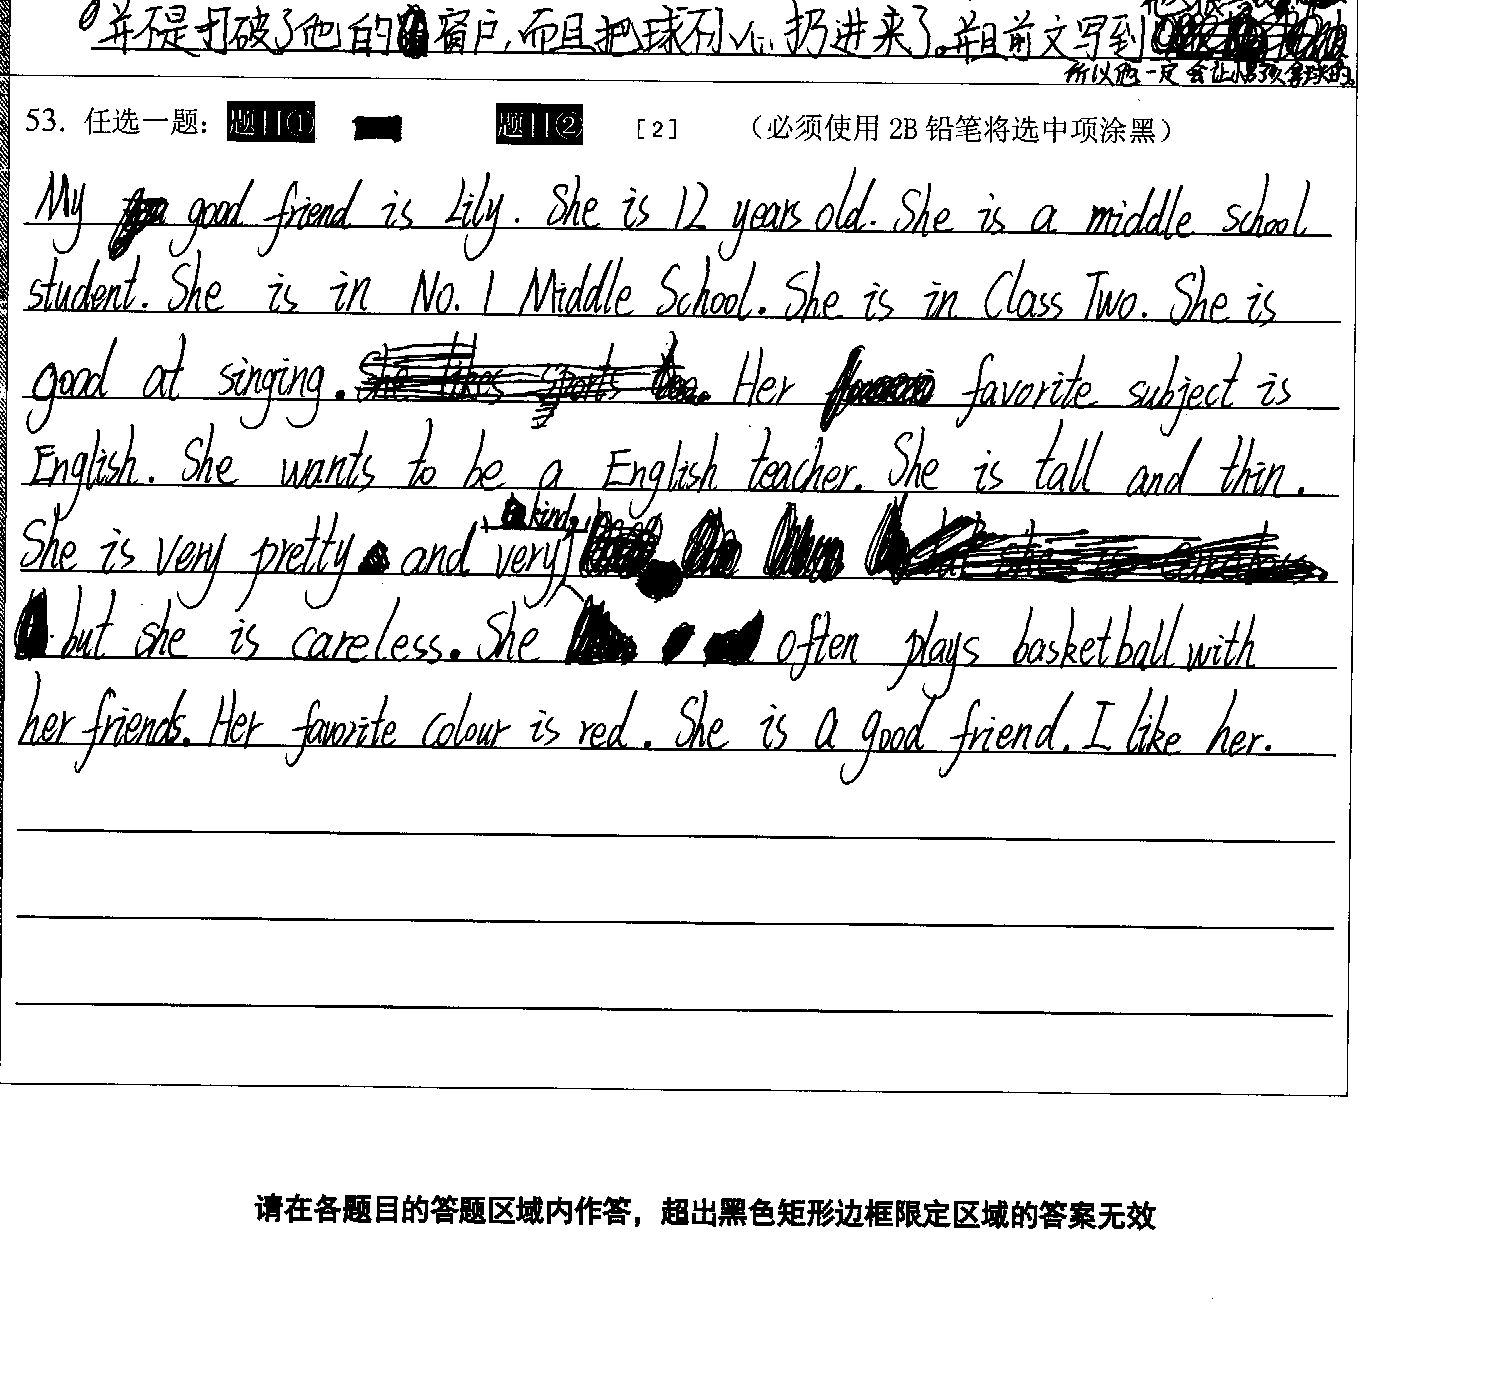 并不是打破了他的窗户,而且把球不小心扔进来了。并且前文写到
所以他一定会让小男孩拿球的。
53. 任选一题: 题目① 题目② [2] (必须使用 2B 铅笔将选中项涂黑)
My good friend is Lily. She is 12 years old. She is a middle school
student. She is in No. 1 Middle School. She is in Class Two. She is
good at singing. Her favorite subject is
English. She wants to be a English teacher. She is tall and thin.
She is very pretty and very kind,
but she is careless. She often plays basketball with
her friends. Her favorite colour is red. She is a good friend. I like her.
请在各题目的答题区域内作答,超出黑色矩形边框限定区域的答案无效